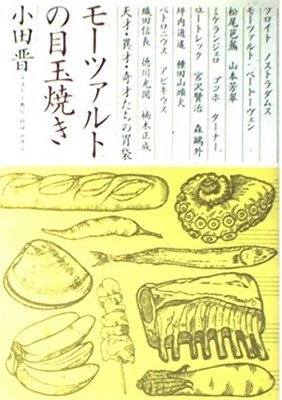 フロイト ノストラダムス
モーツァルト ベートーヴェン
松尾芭蕉 山本芳翠
ミケランジェロ ゴッホ ターナー
ロートレック 宮沢賢治 森鷗外
坪内逍遥 種田山頭火
ペトロニウス アピキウス
織田信長 徳川光圀 楠木正成
天才・異才・奇才たちの胃袋
モーツァルト
の目玉焼き
小田晋